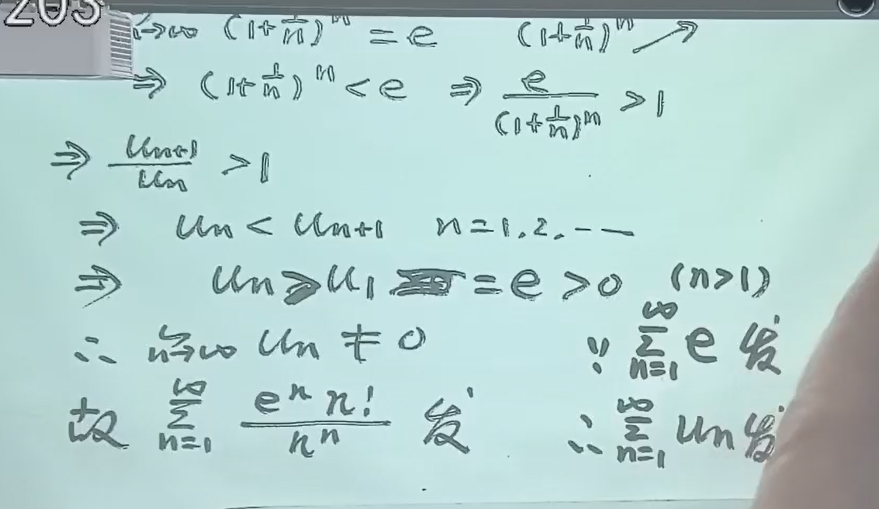 203
n→∞ (1+1/n)^n = e (1+1/n)^n ↗
⇒ (1+1/n)^n < e ⇒ e/(1+1/n)^n > 1
⇒ Un+1/Un > 1
⇒ Un < Un+1 n=1.2.---
⇒ Un ⩾ U1 = e > 0 (n>1)
∴ lim n→∞ Un ≠ 0 ∵ ∞∑n=1 e 发
故 ∞∑n=1 e^n n!/n^n 发 ∴ ∞∑n=1 Un 发